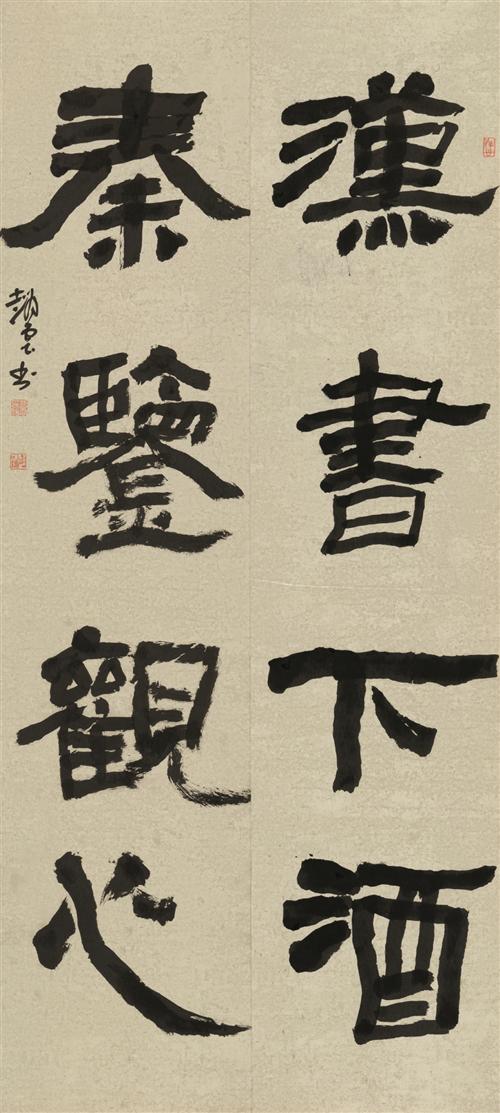 漢書下酒
秦鑒觀心